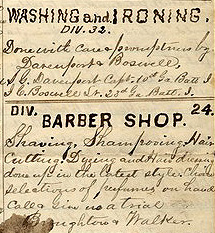 WASHING and IRONING.
DIV. 32.
Done with care & promptness by
Davenport & Boswell.
J. C. Davenport Capt. 10th Ga Batt I
J. C. Boswell Lt. 23d Ga. Batt. I.
DIV. 24.
BARBER SHOP.
Shaving, Shampooing, Hair
Cutting, Dying and Hair dressing
done up in the latest style. Choice
selections of perfumes on hand
call & give us a trial
Broughton & Walker.